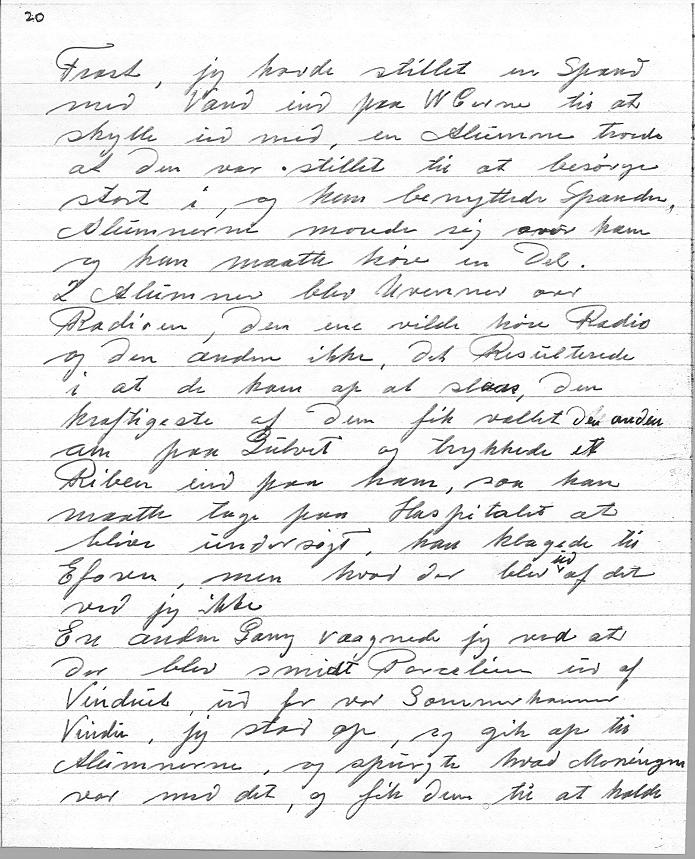 20
Frost, jeg havde stillet en Spand
med Vand ind paa WCerne til at
skylle ud med, en Alumne troede
at den var stillet til at besørge
stort i, og han benyttede Spanden,
Alumnerne morede sig over ham
og han maatte høre en Del.
2 Alumner blev Uvenner over
Radioen, den ene vilde høre Radio
og den anden ikke, det Resulterede
i at de kom op at slaas, den
kraftigeste af dem fik væltet den anden
om paa Gulvet og trykkede et
Riben ind paa ham, saa han
maatte tage paa Hospitalet at
blive undersøgt, han klagede til
Eforen, men hvad der blev ud af det
ved jeg ikke
En anden Gang vaagnede jeg ved at
der blev smidt Porcelæn ud af
Vinduet, ud for vor Sommerkammer
Vindu, jeg stod op, og gik op til
Alumnerne, og spurgte hvad Meningen
var med det, og fik dem til at holde